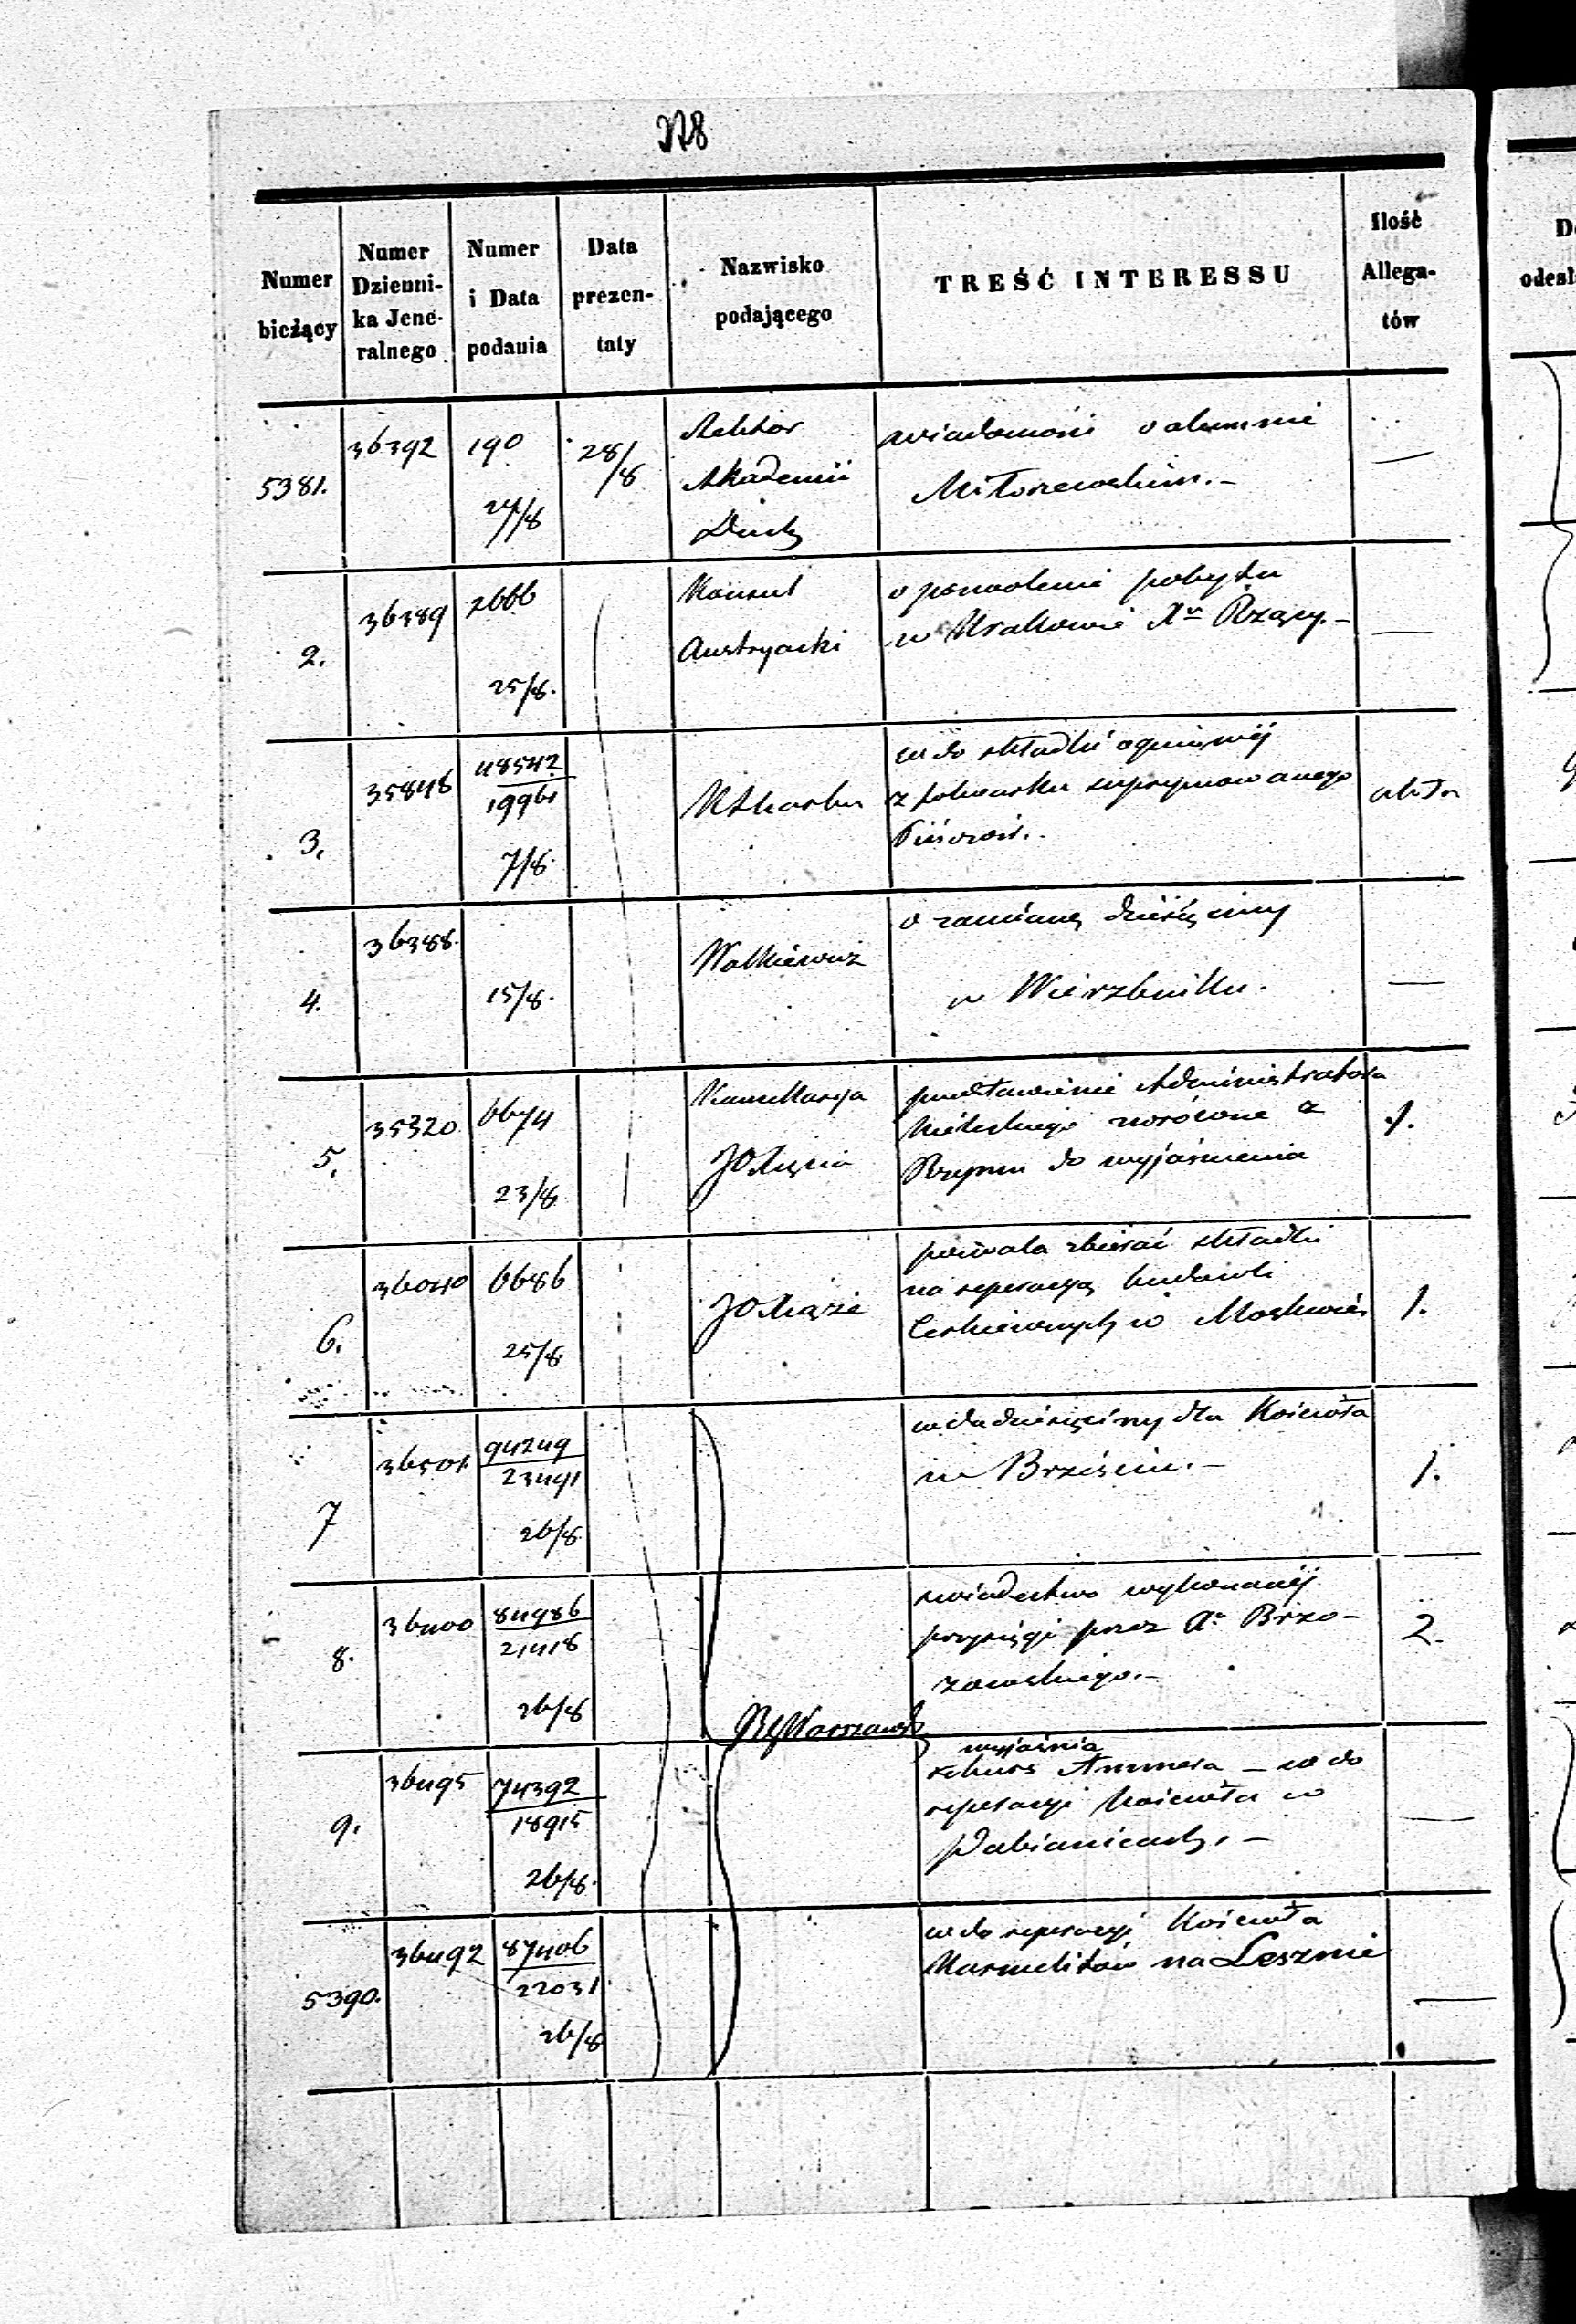 Numer bieżący
Numer Dzienni-ka Jene-ralnego
Numer i Data podania
Data prezen-taty
Nazwisko podającego
TREŚĆ INTERESSU
Ilość Allega-tów
5381.
36392
190
24/8
28/8
Rektor
Akademii
Duch
wiadomość o alumnie
Miłoszewskim.–
—
2.
36389
2666
25/8.
Konsul
Austryacki
o pozwolenie pobytu
w Krakowie Xu Rzący.–
—
3.
35848
48542
19961
7/8.
KSkarbu
w do składki ogniowej
z folwarku supprymowanego
4.
36388.
15/8.
Walkiewicz
o zamianę dziesięciny
w Wierzbniku.
—
5.
35320
6674
23/8
Kancellarya
JOXięcia
przedstawienie Administratora
Kieleckiego zwrócone z
Rzymu do wyjaśnienia
1.
6.
36040
6686
25/8
JOXiąże
pozwala zbierać składki
na reperacyą budowli
Cerkiewnych w Moskwie
1.
7
36501.
94249
23491
26/8.
w do dziesięciny dla Kościoła
w Brzeźciu.–
1.
8.
36400
84986
21418
26/8
świadectwo wykonanej
przysięgi przez Xa Brzo-
zowskiego.–
2.
RGWarszawski
9.
36495
74392
18915
26/8.
wyjaśnia
rekurs Ammera – w do
reperacyi Kościoła w
Pabianicach.–
—
5390.
36492
87406
22031
26/8
w do reperacyi Kościoła
Karmelitów na Lesznie
—